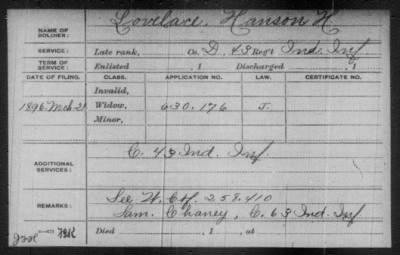 NAME OF SOLDIER: Lovelace, Hanson H.
SERVICE: Late rank, Co. D, 43 Reg't Ind. Inf.
TERM OF SERVICE: Enlisted , 1 Discharged , 1
DATE OF FILING. CLASS. APPLICATION NO. LAW. CERTIFICATE NO.
Invalid,
1896 Mch 21 Widow, 630.176 J.
Minor,
ADDITIONAL SERVICES: C. 43 Ind. Inf.
REMARKS: See W. Ctf. 258.410
Sam. Chaney, C. 63 Ind. Inf.
Died , 1 , at